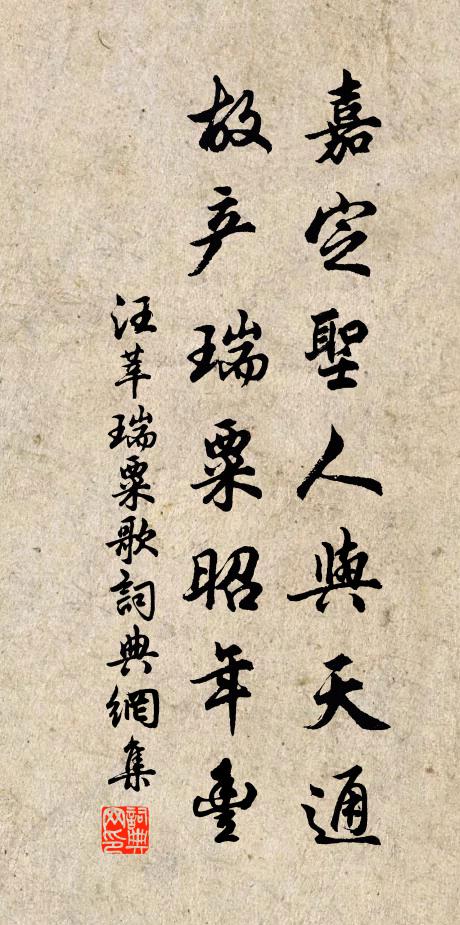 嘉定聖人與天通
故产瑞粟昭年豐
汪莘瑞粟歌詞典網集
詞典网印